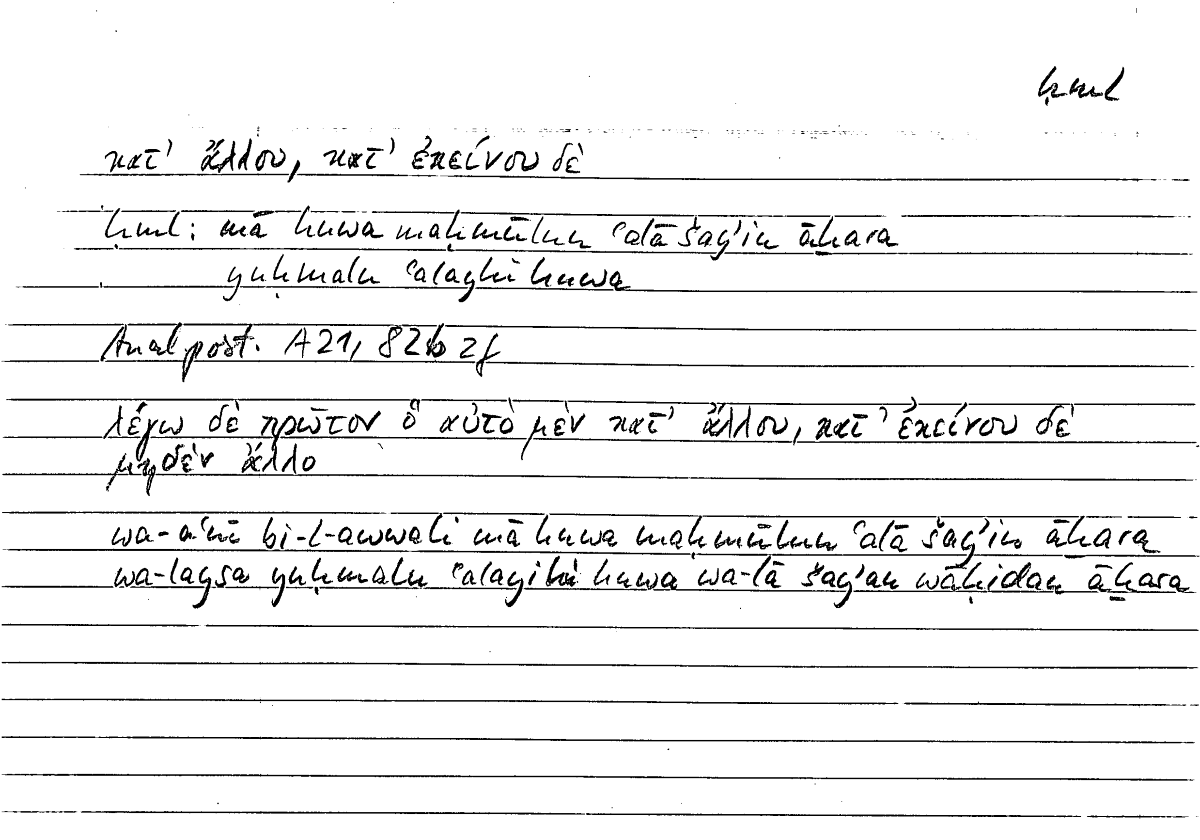 ḥml
κατ' ἄλλου, κατ' ἐκείνου δὲ
ḥml: mā huwa maḥmūlun ʿalā šayʾin āḫara
yuḥmalu ʿalayhi huwa
Anal post. A 21, 82b 2f
λέγω δὲ πρῶτον ὃ αὐτὸ μὲν κατ' ἄλλου, κατ' ἐκείνου δὲ
μηδὲν ἄλλο
wa-aʿnī bi-l-awwali mā huwa maḥmūlun ʿalā šayʾin āḫara
wa-laysa yuḥmalu ʿalayhi huwa wa-lā šayʾan wāḥidan āḫara